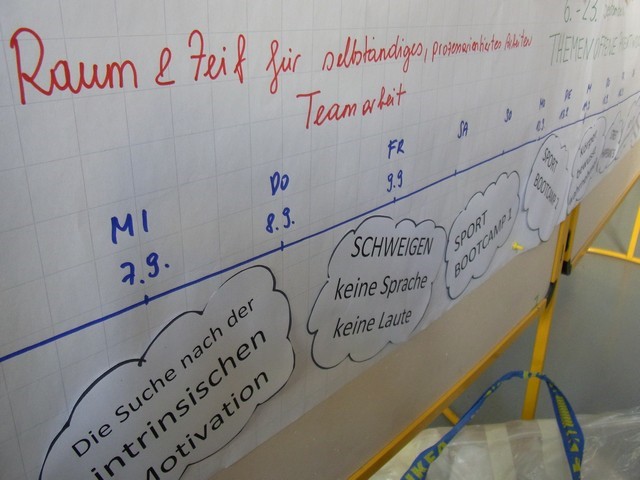 6.-23.
THEMEN OFFENE
Raum & Zeit für selbständiges, prozessorientiertes Arbeiten
Teamarbeit
MI
7.9.
DO
8.9.
FR
9.9
SA
SO
MO
Die Suche nach der
intrinsischen
Motivation
SCHWEIGEN
keine Sprache
keine Laute
SPORT
BOOTCAMP 1
SPORT
BOOTCAMP
IKEA